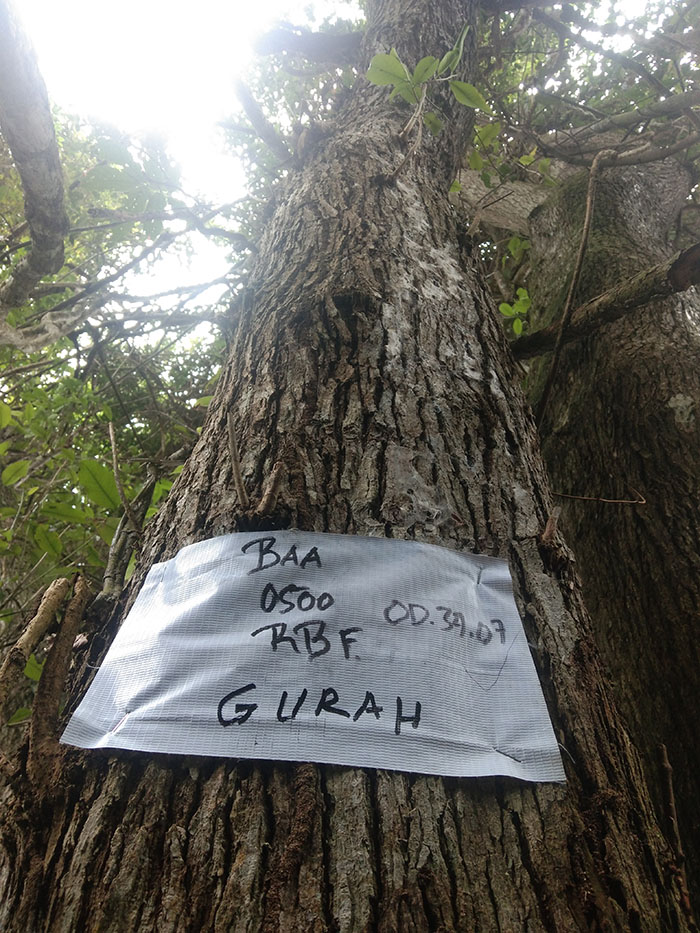 BAA
0500
RBF.
OD.39.07
GURAH